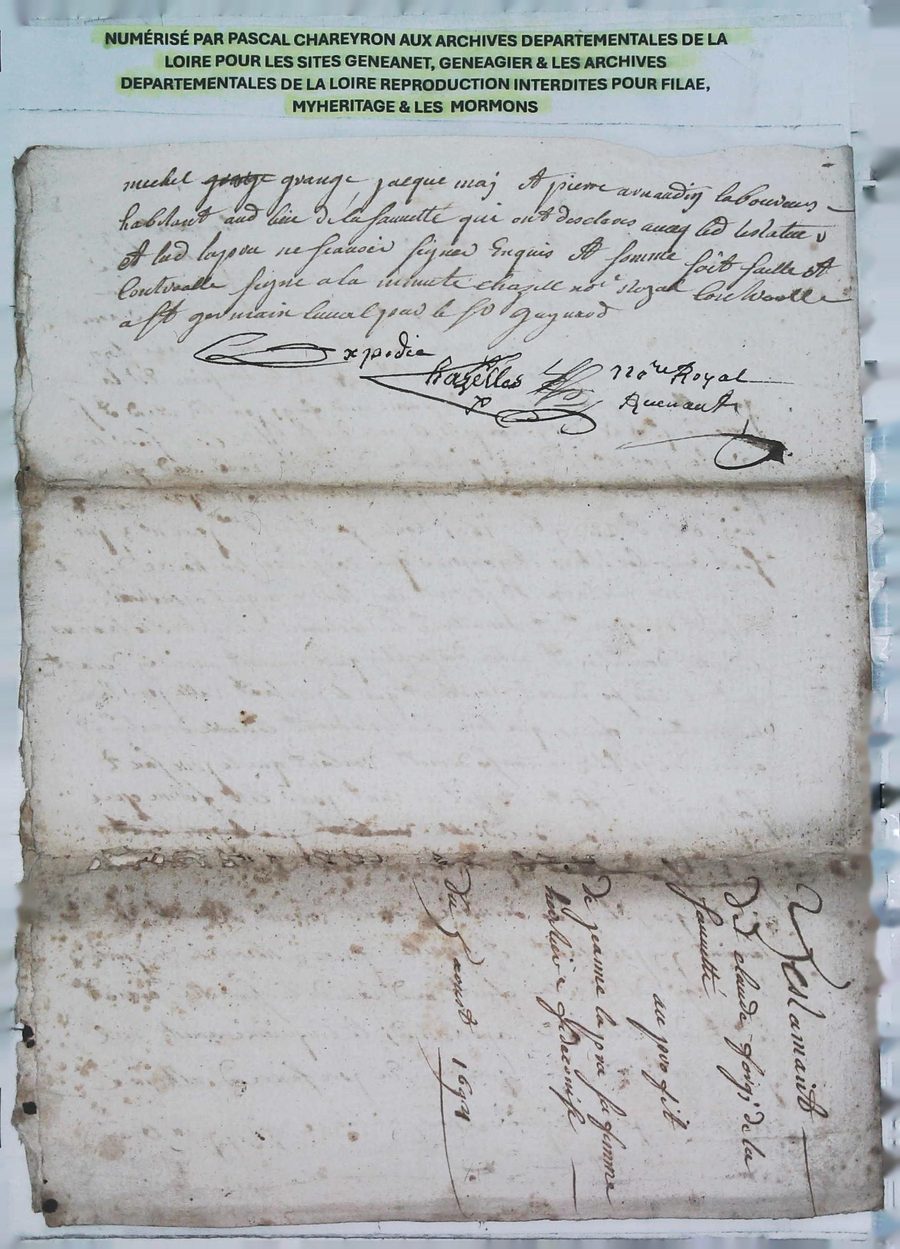 NUMÉRISÉ PAR PASCAL CHAREYRON AUX ARCHIVES DEPARTEMENTALES DE LA
LOIRE POUR LES SITES GENEANET, GENEAGIER & LES ARCHIVES
DEPARTEMENTALES DE LA LOIRE REPRODUCTION INTERDITES POUR FILAE,
MYHERITAGE & LES MORMONS
michel grange jacque maj Et pierre arnaudin laboureurs
habitant aud lieu de la fauuette qui ont desclaré auecq led testateur
Et lad lapra ne scauoir signer Enquis Et somme soit scellé Et
controolle signe a la minute chazelle no.re Royal controolle
a st germain laual par le sr
Expedie
Chazelles no.re Royal
Receuant
Testamant
De claude de la
fauuette
au proffit
De jeanne lapra sa femme
heritiere
Du aoust 1691